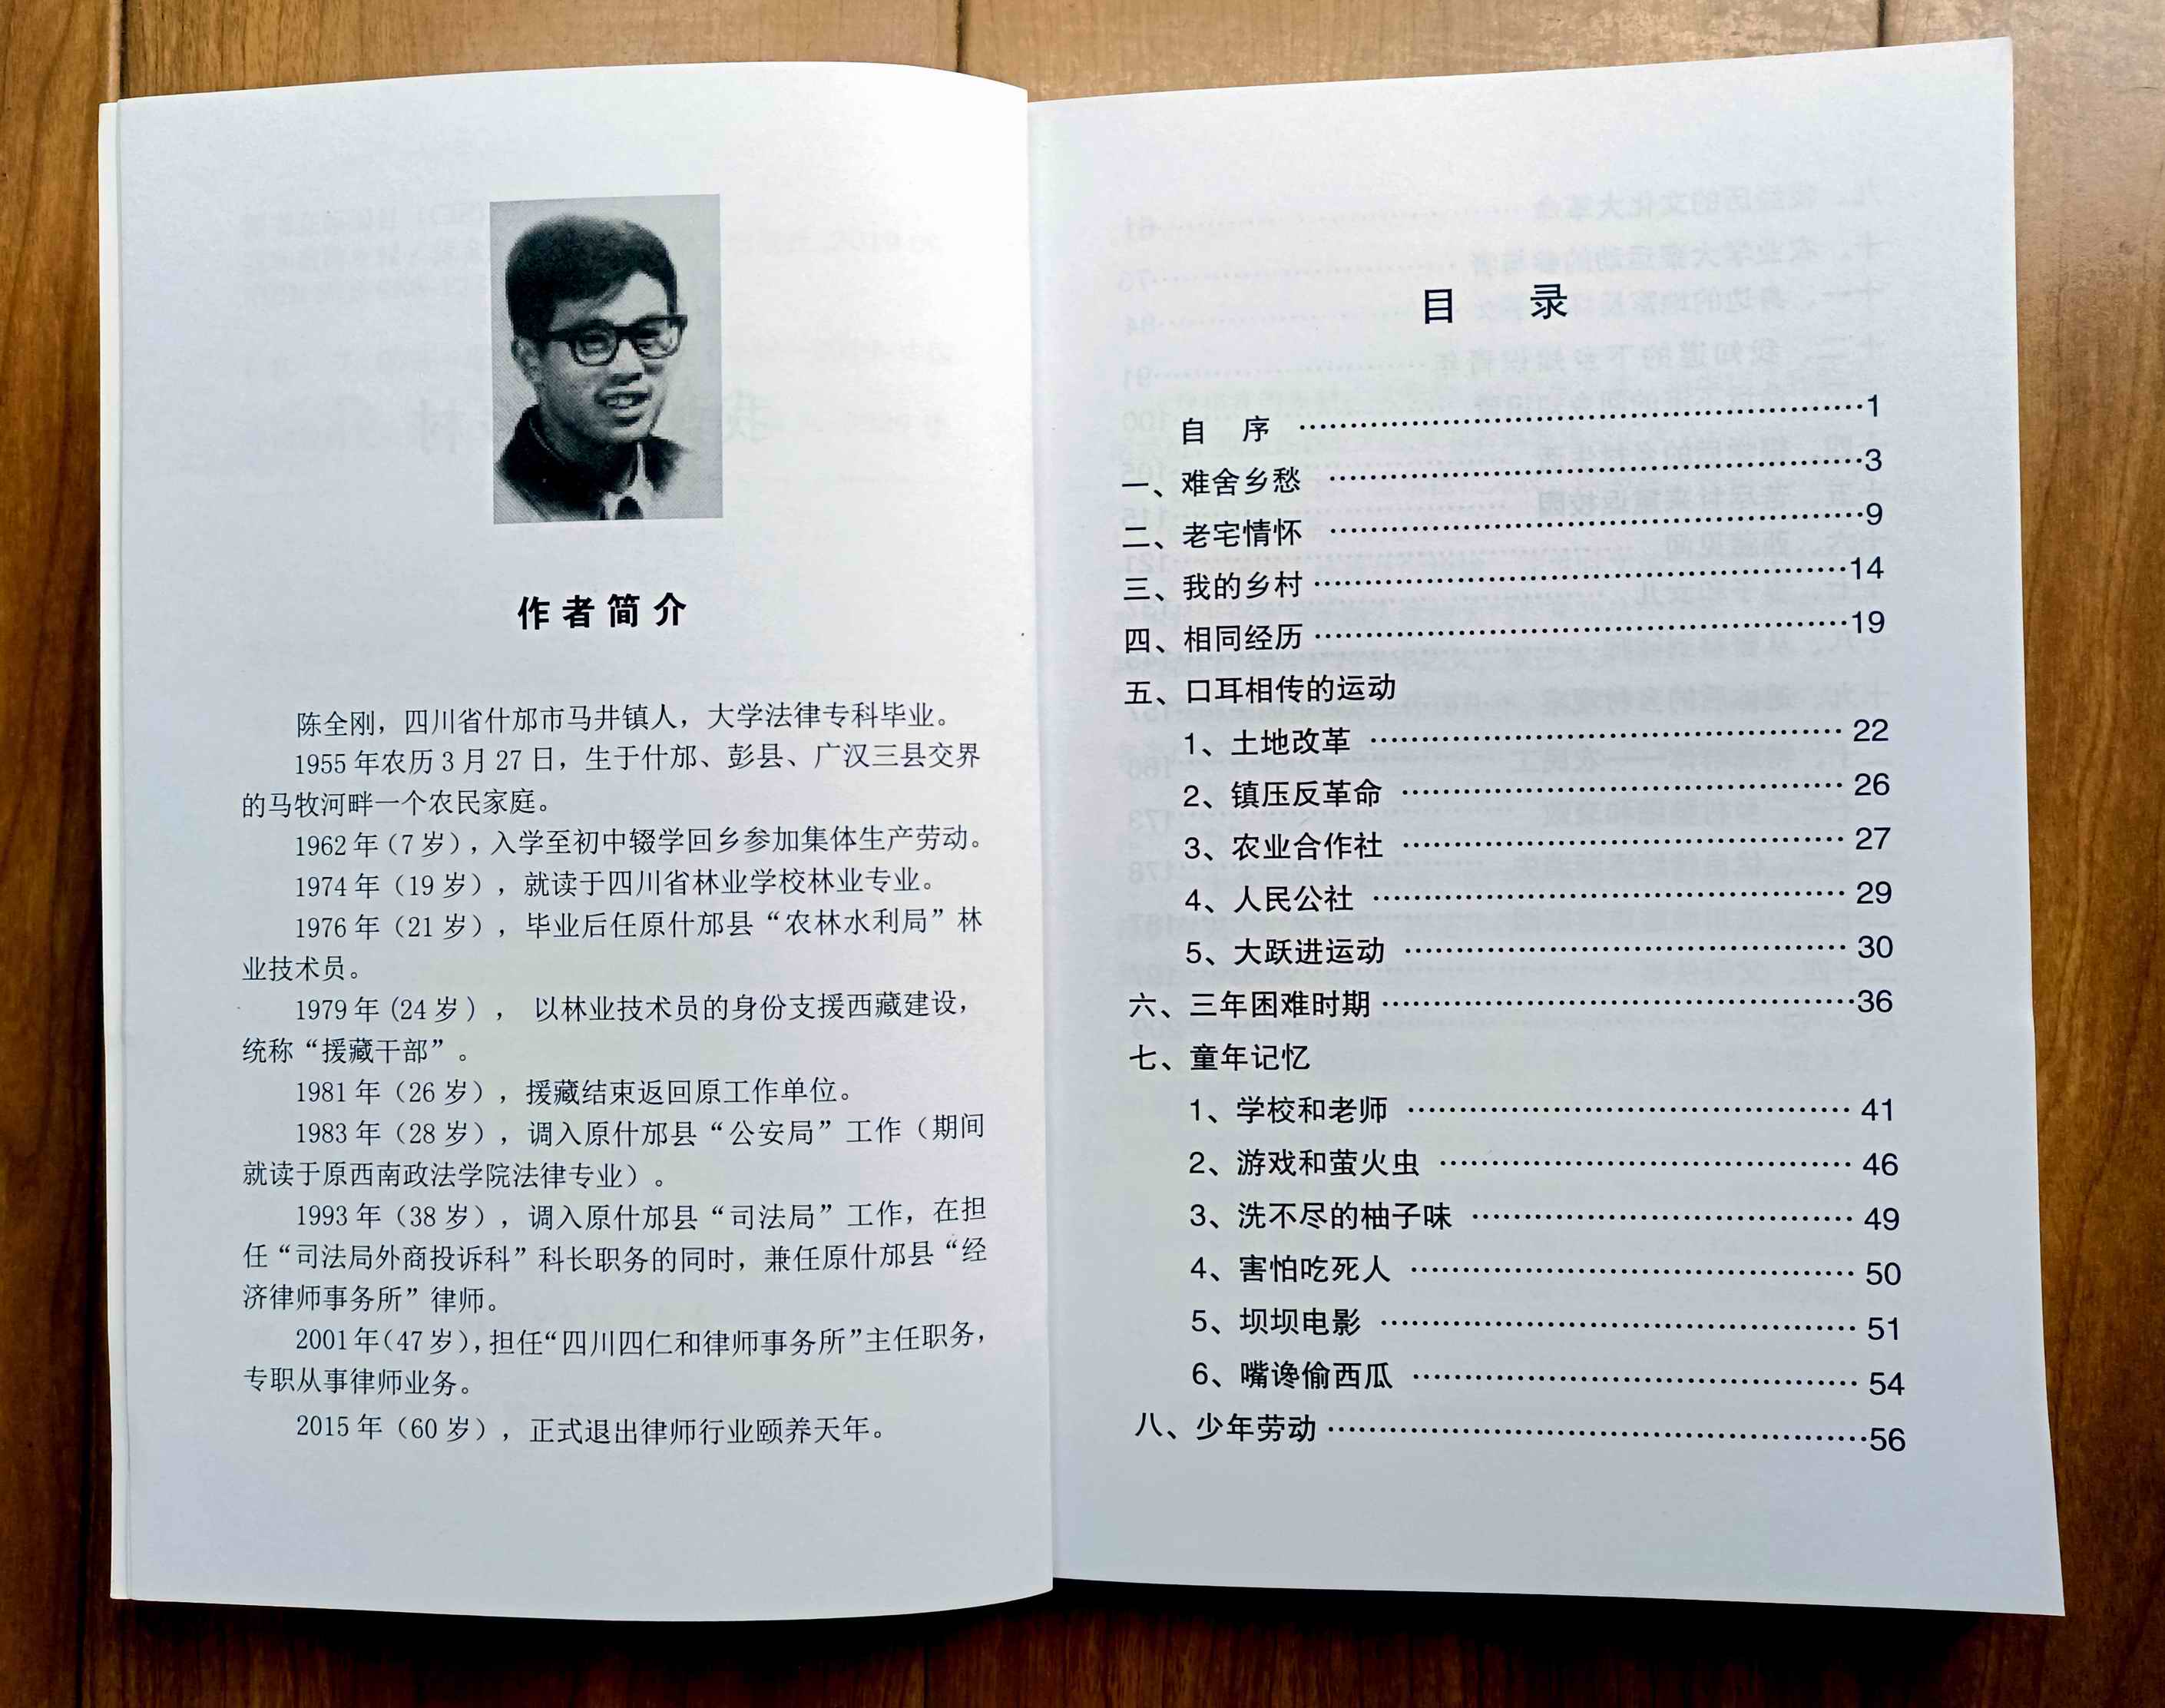 作者简介
陈全刚，四川省什邡市马井镇人，大学法律专科毕业。
1955年农历3月27日，生于什邡、彭县、广汉三县交界
的马牧河畔一个农民家庭。
1962年（7岁），入学至初中辍学回乡参加集体生产劳动。
1974年（19岁），就读于四川省林业学校林业专业。
1976年（21岁），毕业后任原什邡县“农林水利局”林
业技术员。
1979年(24岁)， 以林业技术员的身份支援西藏建设，
统称“援藏干部”。
1981年（26岁），援藏结束返回原工作单位。
1983年（28岁），调入原什邡县“公安局”工作（期间
就读于原西南政法学院法律专业）。
1993年（38岁），调入原什邡县“司法局”工作，在担
任“司法局外商投诉科”科长职务的同时，兼任原什邡县“经
济律师事务所”律师。
2001年(47岁)，担任“四川四仁和律师事务所”主任职务，
专职从事律师业务。
2015年（60岁），正式退出律师行业颐养天年。
目 录
自 序 ……………………1
一、难舍乡愁 ……………………3
二、老宅情怀 ……………………9
三、我的乡村 ……………………14
四、相同经历 ……………………19
五、口耳相传的运动
1、土地改革 …………………… 22
2、镇压反革命 …………………… 26
3、农业合作社 …………………… 27
4、人民公社 …………………… 29
5、大跃进运动 …………………… 30
六、三年困难时期 ……………………36
七、童年记忆
1、学校和老师 …………………… 41
2、游戏和萤火虫 …………………… 46
3、洗不尽的柚子味 …………………… 49
4、害怕吃死人 …………………… 50
5、坝坝电影 …………………… 51
6、嘴馋偷西瓜 …………………… 54
八、少年劳动 ……………………56